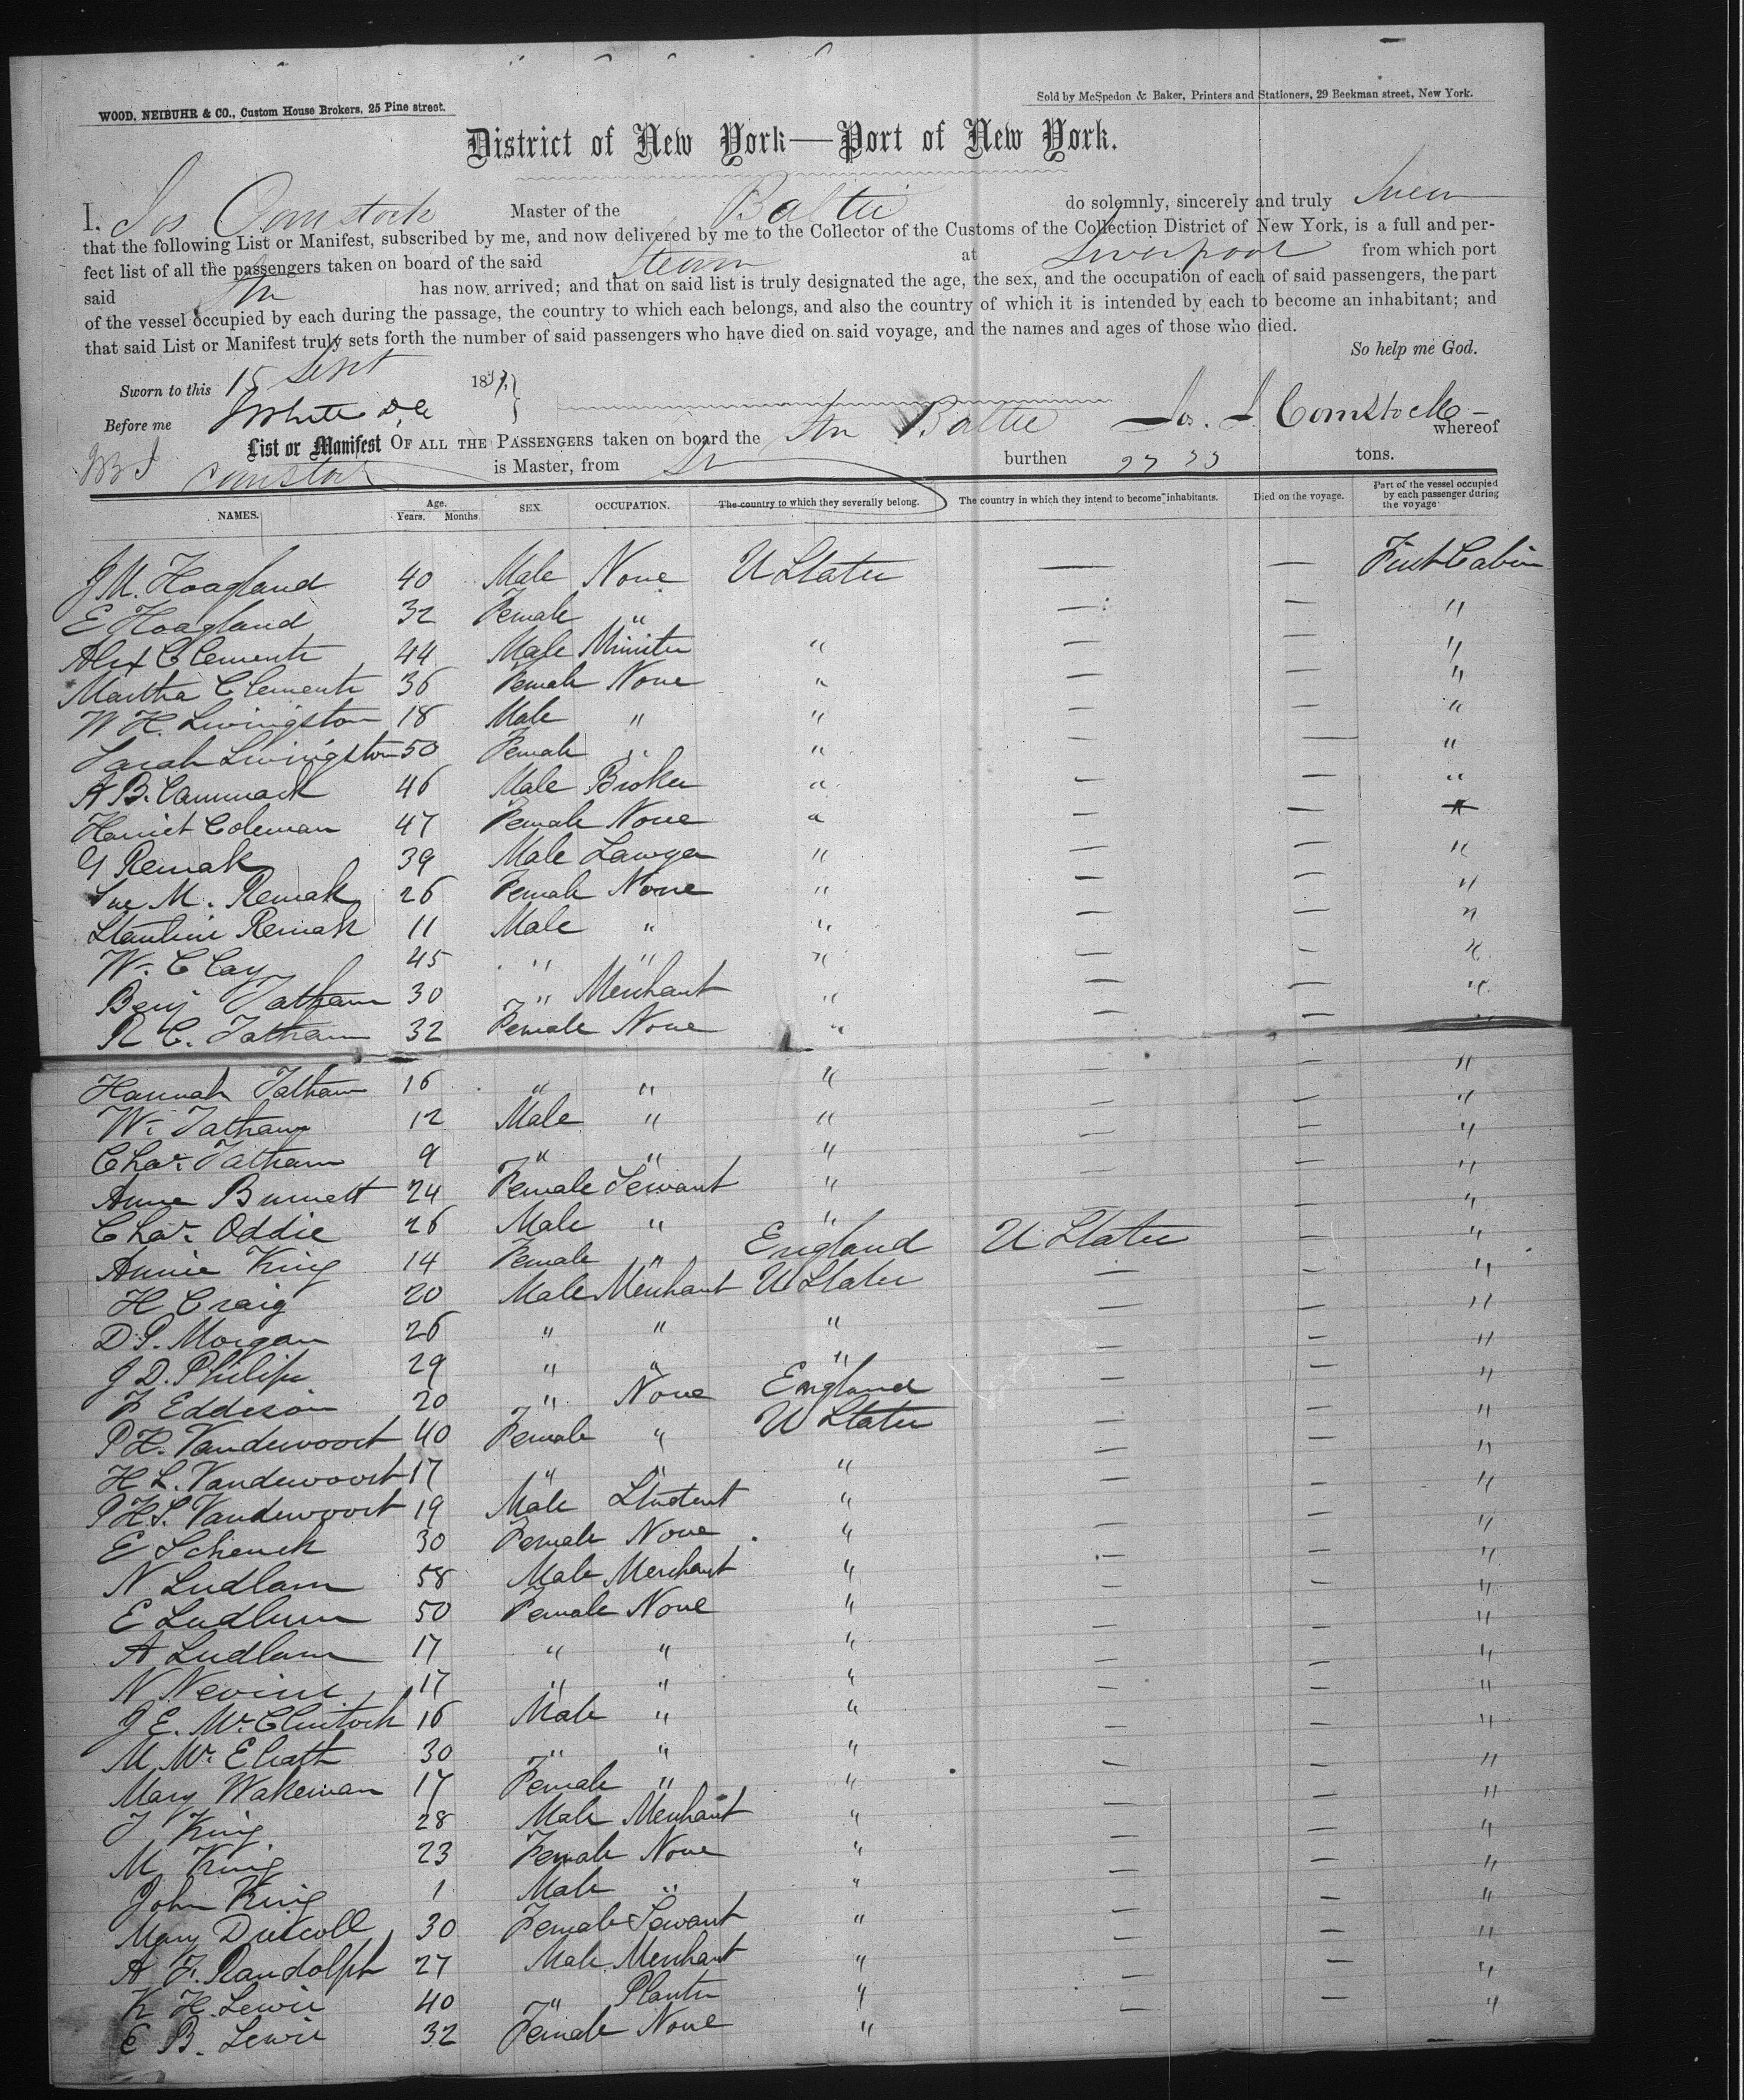 WOOD, NEIBUHR & CO., Custom House Brokers, 25 Pine street.
Sold by McSpedon & Baker, Printers and Stationers, 29 Beekman street, New York.
District of New York—Port of New York.
I, Jos Comstock Master of the Baltic do solemnly, sincerely and truly swear
that the following List or Manifest, subscribed by me, and now delivered by me to the Collector of the Customs of the Collection District of New York, is a full and per-
fect list of all the passengers taken on board of the said Steam at Liverpool from which port
said Str has now arrived; and that on said list is truly designated the age, the sex, and the occupation of each of said passengers, the part
of the vessel occupied by each during the passage, the country to which each belongs, and also the country of which it is intended by each to become an inhabitant; and
that said List or Manifest truly sets forth the number of said passengers who have died on said voyage, and the names and ages of those who died.
So help me God.
Sworn to this 15 Sept 185
Before me White
Jos. J. Comstock
List or Manifest OF ALL THE PASSENGERS taken on board the Str Baltic whereof
Comstock is Master, from burthen tons.
NAMES. Age. Years. Months SEX. OCCUPATION. The country to which they severally belong. The country in which they intend to become inhabitants. Died on the voyage. Part of the vessel occupied by each passenger during the voyage
J M. Hoagland 40 Male None U States — — First Cabin
E Hoagland 32 Female " — — "
Alex Clements 44 Male Minister " — — "
Martha Clements 36 Female None " — — "
W H. Livingston 18 Male " " — — "
Sarah Livingston 50 Female " " — — "
A B. Cammack 46 Male Broker " — — "
Harriet Coleman 47 Female None " — — "
G Remak 39 Male Lawyer " — — "
Sue M. Remak 26 Female None " — — "
Remak 11 Male " " — — "
W. Clay 45 " " " — — "
Benj Tatham 30 " Merchant " — — "
R C. Tatham 32 Female None " — — "
Hannah Tatham 16 " " " — — "
W. Tatham 12 Male " " — — "
Chas. Tatham 9 " " " — — "
Anne Burnett 24 Female Servant " — — "
Chas. Oddie 26 Male " " — "
Annie King 14 Female " England U States — "
H Craig 20 Male Merchant U States — — "
D. P. Morgan 26 " " " — — "
J D. Philips 29 " " " — — "
F Eddison 20 " None England — — "
P H. Vandervoort 40 Female " U States — — "
H L. Vandervoort 17 " " " — — "
P H. S. Vandervoort 19 Male Student " — — "
E Schenck 30 Female None " — — "
N Ludlam 58 Male Merchant " — — "
E Ludlum 50 Female None " — — "
A Ludlam 17 " " " — — "
N Nevins 17 " " " — — "
J E. McClintock 16 Male " " — — "
M 30 " " " — — "
Mary Wakeman 17 Female " " — — "
J King 28 Male Merchant " — — "
M King 23 Female None " — — "
John King 1 Male " " — — "
Mary Driscoll 30 Female Servant " — — "
A F. Randolph 27 Male Merchant " — — "
K H. Lewis 40 " Planter " — — "
E B. Lewis 32 Female None " — — "